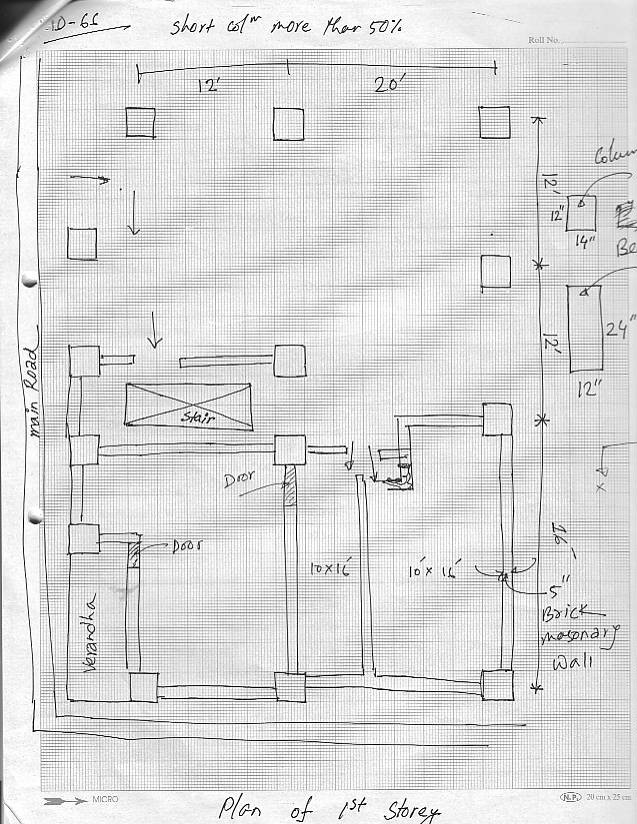 ID-66
short col^m more than 50%
Roll No.
12'
20'
Colum
12'
12"
14"
Be
24"
12'
12"
main Road
Stair
x
Door
Door
10x16'
10'x16'
16'
5"
Brick
masonary
Wall
Verandha
MICRO
N.P.
20 cm x 25 cm
Plan of 1st Storey